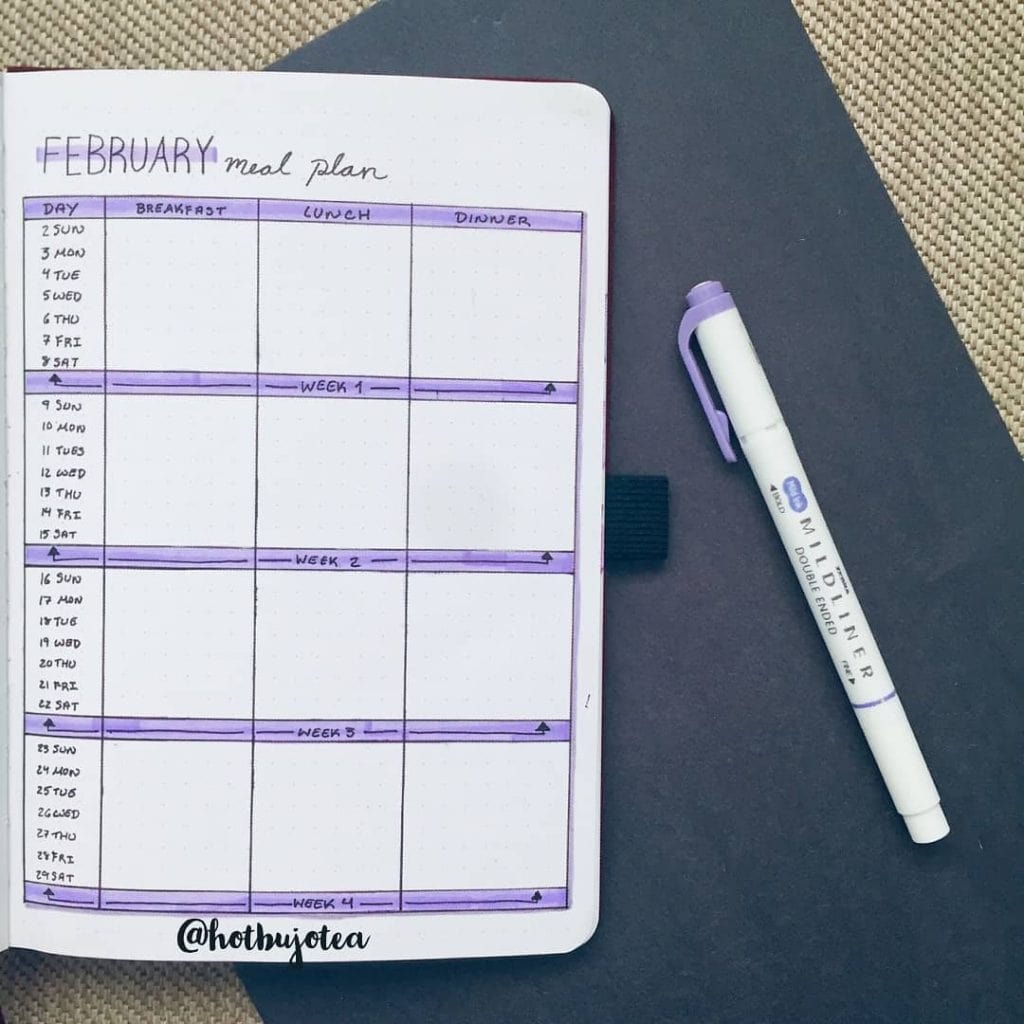 FEBRUARY meal plan
DAY BREAKFAST LUNCH DINNER
2 SUN
3 MON
4 TUE
5 WED
6 THU
7 FRI
8 SAT
WEEK 1
9 SUN
10 MON
11 TUES
12 WED
13 THU
14 FRI
15 SAT
WEEK 2
16 SUN
17 MON
18 TUE
19 WED
20 THU
21 FRI
22 SAT
WEEK 3
23 SUN
24 MON
25 TUE
26 WED
27 THU
28 FRI
29 SAT
WEEK 4
@hotbujotea
BOLD
Mild Ink
ZEBRA
MILDLINER
DOUBLE ENDED
FINE